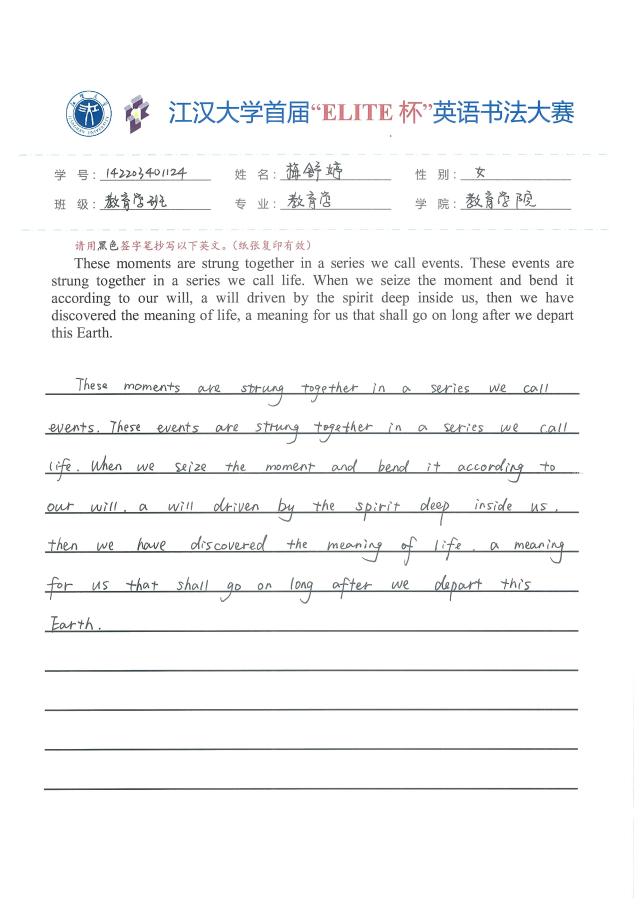 江汉大学首届“ELITE 杯”英语书法大赛
学 号: 142203401124 姓 名: 梅舒婷 性 别: 女
班 级: 教育学班 专 业: 教育学 学 院: 教育学院
请用黑色签字笔抄写以下英文。(纸张复印有效)
These moments are strung together in a series we call events. These events are
strung together in a series we call life. When we seize the moment and bend it
according to our will, a will driven by the spirit deep inside us, then we have
discovered the meaning of life, a meaning for us that shall go on long after we depart
this Earth.
These moments are strung together in a series we call
events. These events are strung together in a series we call
life. When we seize the moment and bend it according to
our will, a will driven by the spirit deep inside us,
then we have discovered the meaning of life, a meaning
for us that shall go on long after we depart this
Earth.